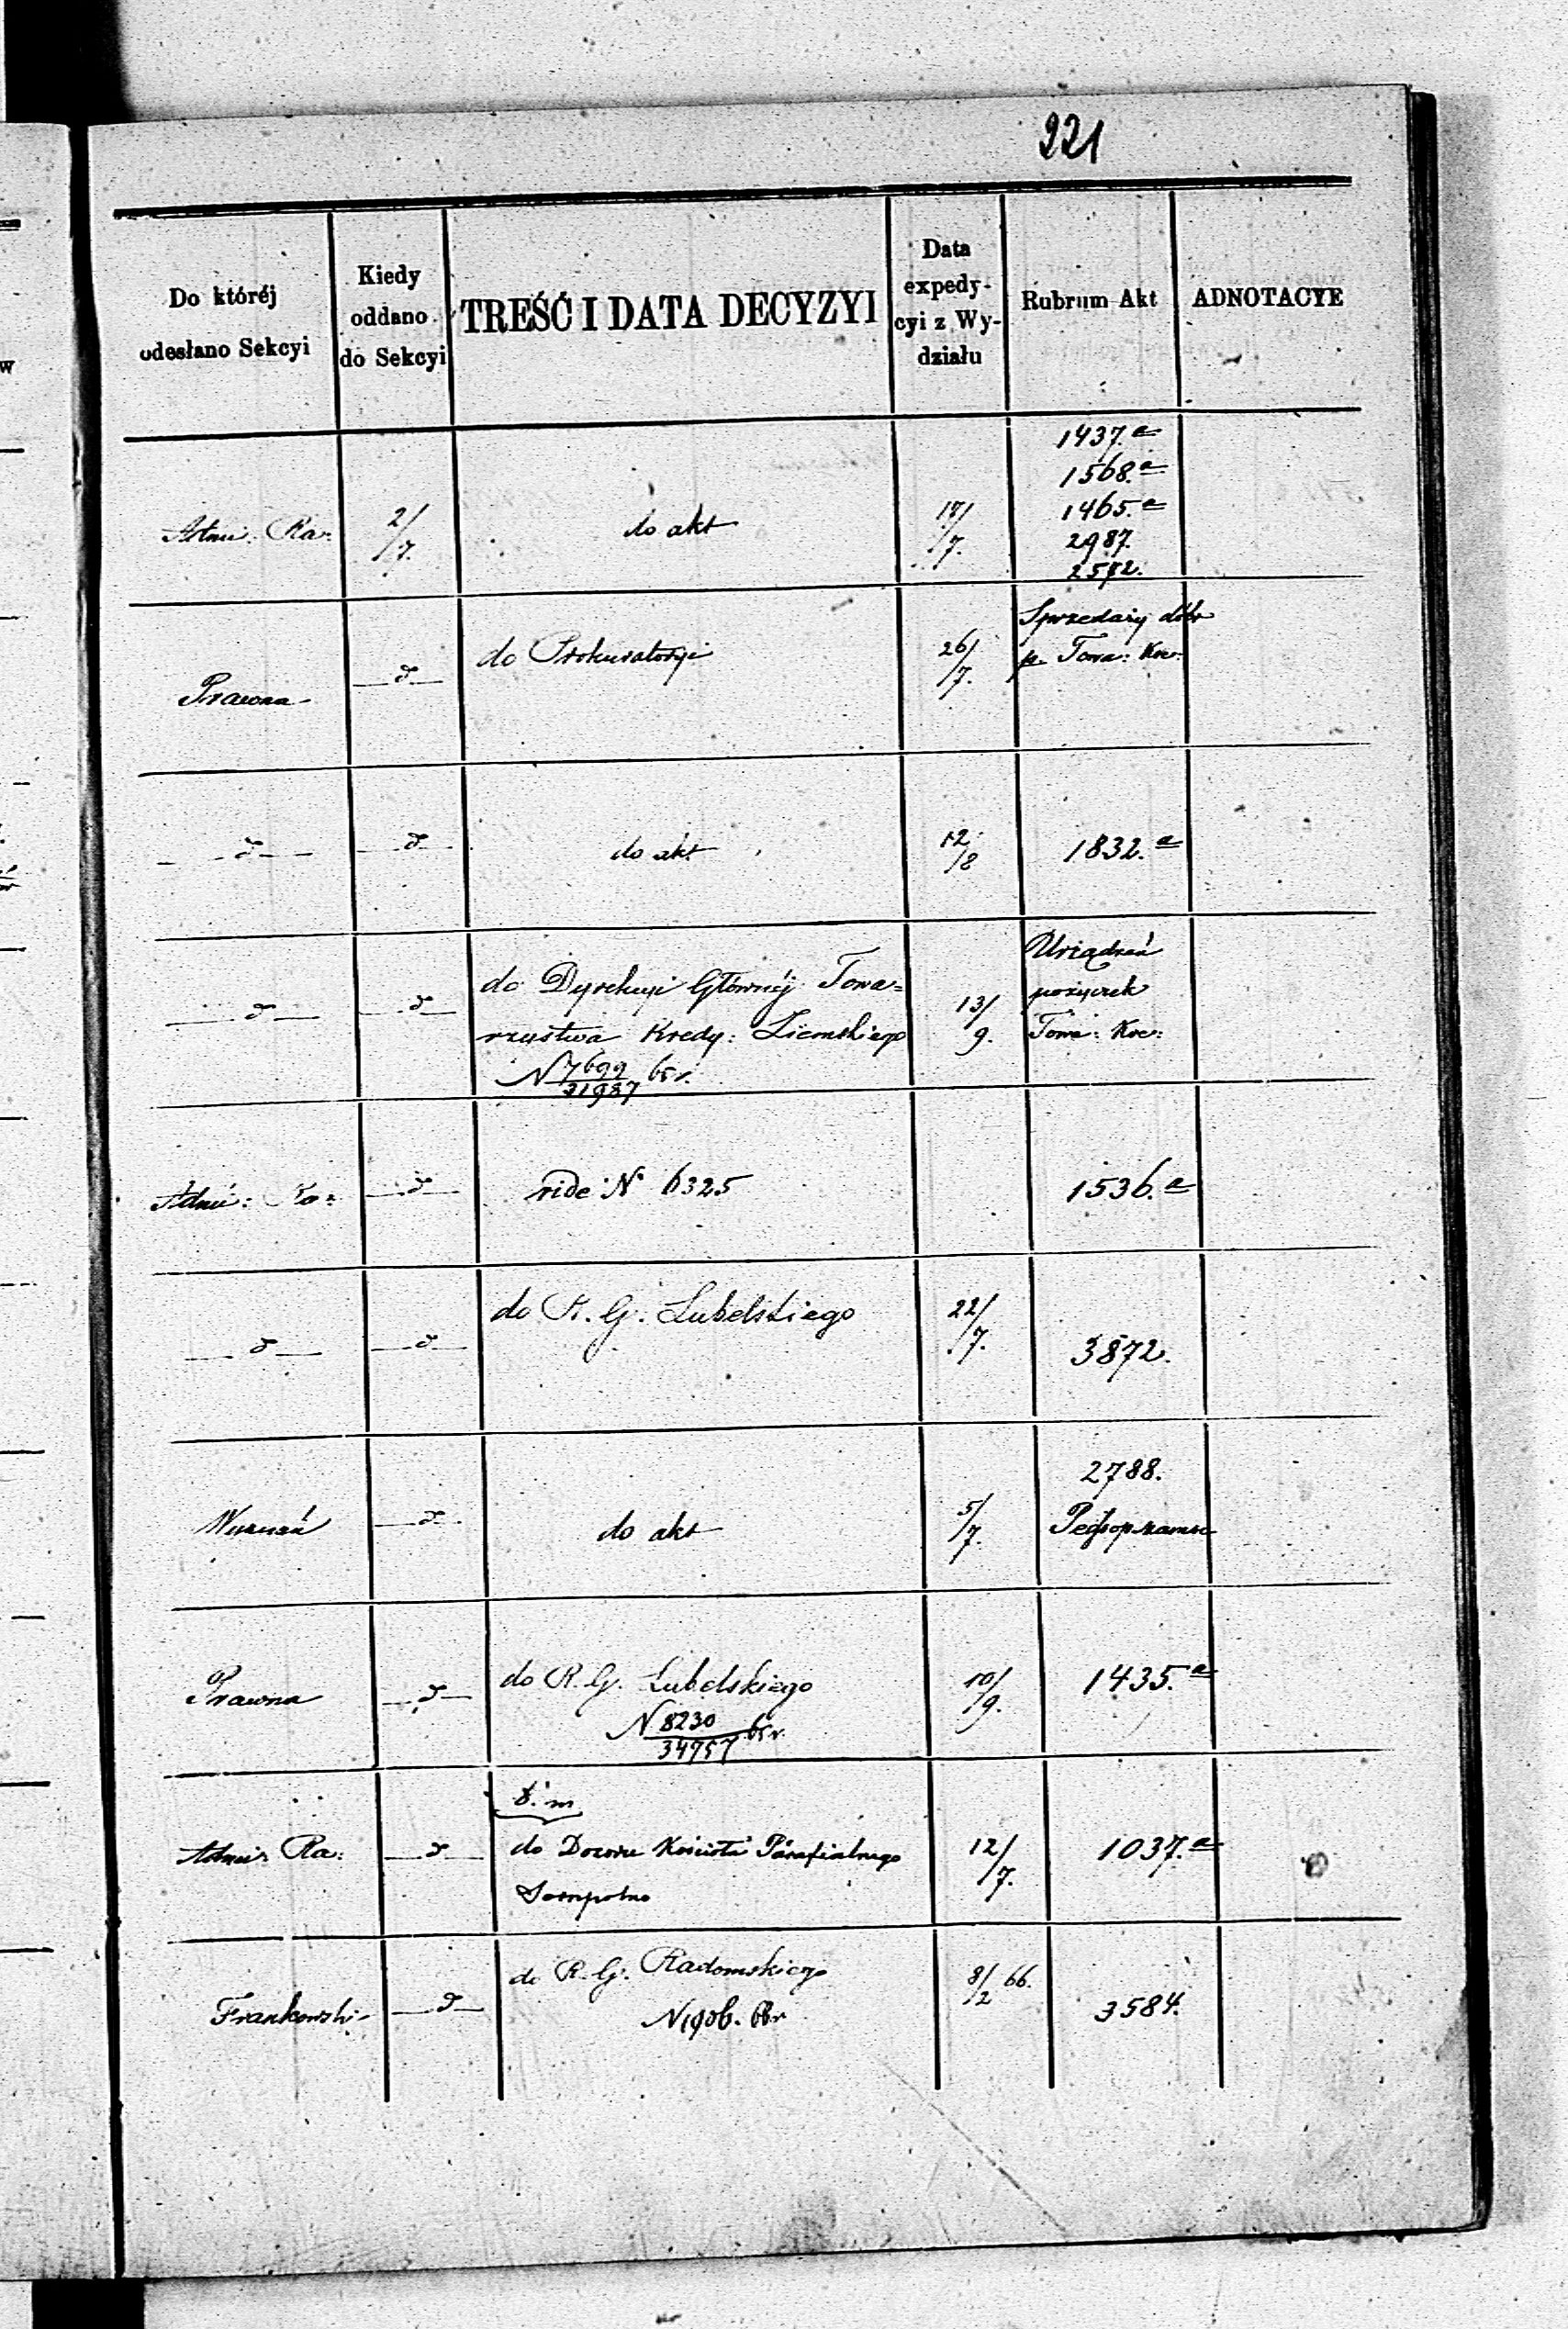 221
Do któréj
odesłano Sekcyi
Kiedy
oddano
do Sekcyi
TREŚĆ I DATA DECYZYI
Data
expedy-
cyi z Wy-
działu
Rubrum Akt
ADNOTACYE
Admi: Ra:
2/7.
do akt
17/7.
1437.a
1568.a
1465.a
2987.
2572.
Prawna
d
do Prokuratoryi
26/7.
Sprzedaży dóbr
p. Towa: Kre:
d
d
do akt
12/8
1832.a
d
d
do Dyrekcyi Głównéj Towa=
rzystwa Kredy: Ziemskiego
N 7699/31987 65 r.
13/9.
Urządzeń
pożyczek
Towa: Kre:
Admi: Ra:
d
vide N° 6325
1536.a
d
d
do R. G. Lubelskiego
22/7.
3872.
d
do akt
5/7.
2788.
Prawna
d
do R. G. Lubelskiego
N 8230/34757 65 r.
10/9.
1435.a
Admi: Ra:
d
do Dozoru Kościoła Parafialnego
Sompolno
12/7.
1037.a
Frankowski
d
do R. G. Radomskiego
N 1906. 66 r
8/2 66.
3584.